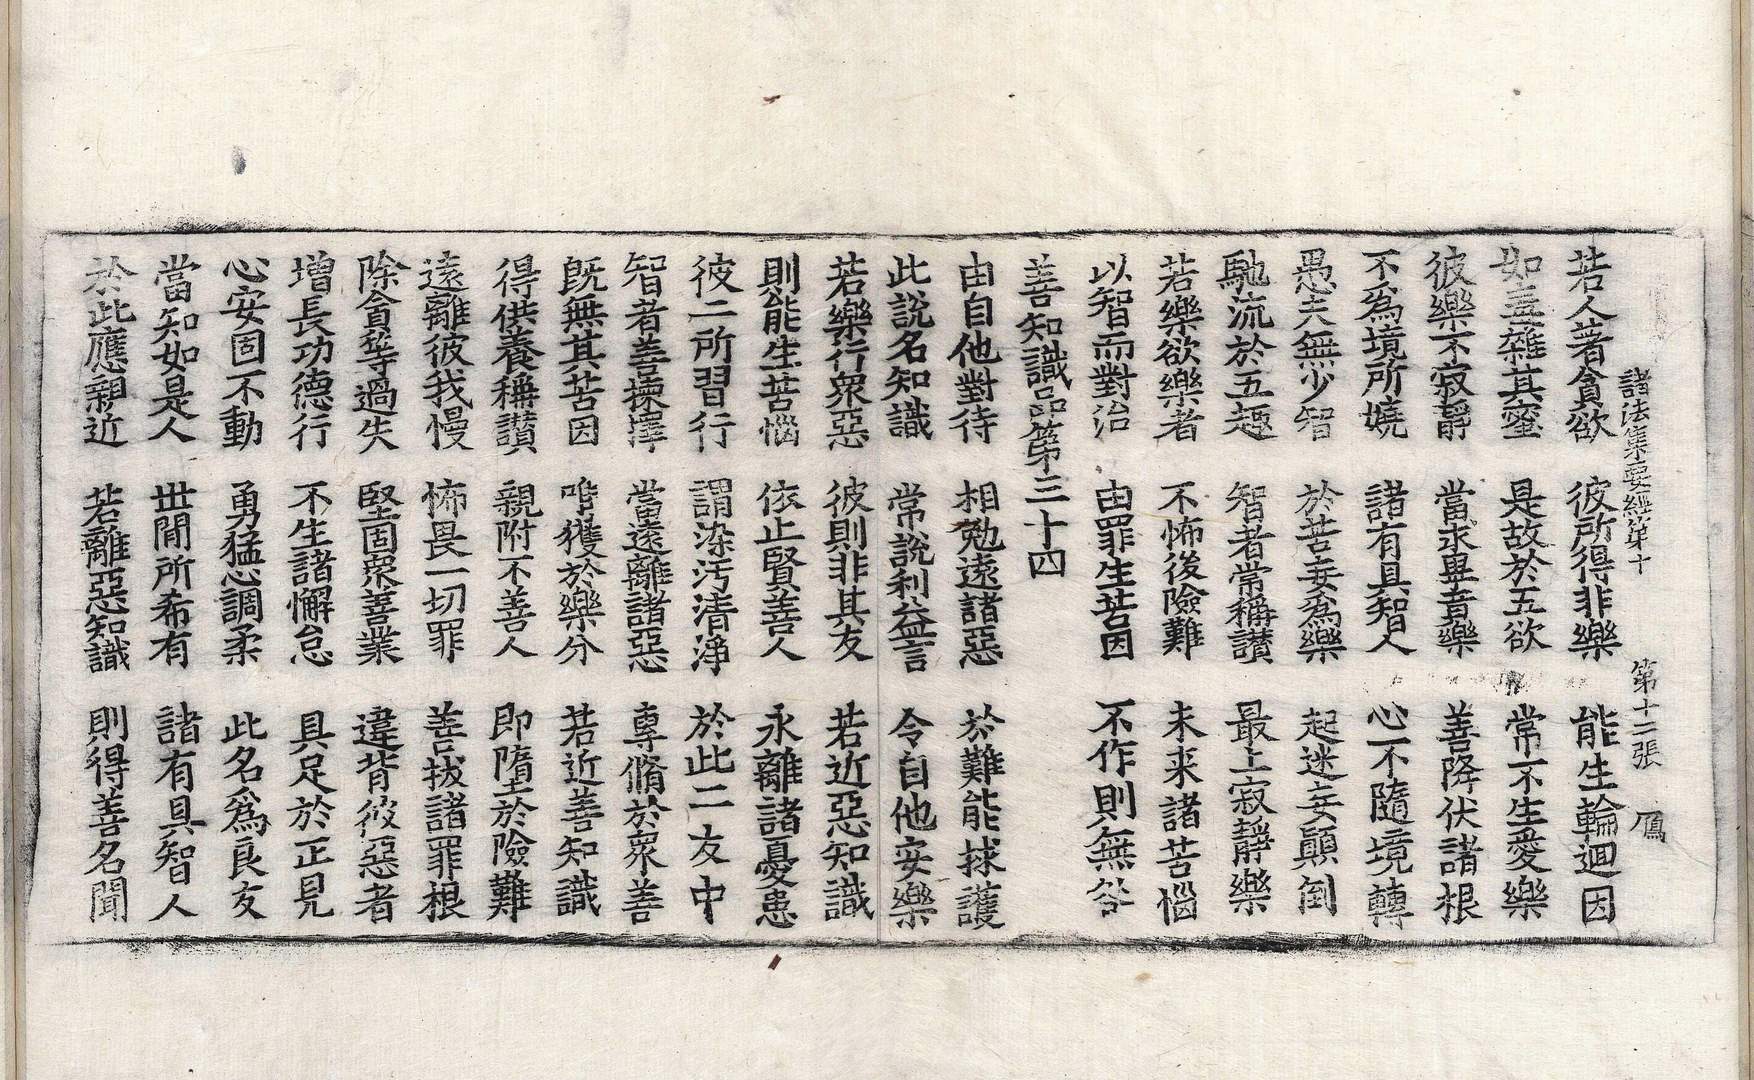 諸法集要經第十 第十二張 鴈
若人著貪欲 彼所得非樂 能生輪迴因
如毒雜其蜜 是故於五欲 常不生愛樂
彼樂不寂靜 當求畢竟樂 善降伏諸根
不爲境所嬈 諸有具智人 心不隨境轉
愚夫無少智 於苦妄爲樂 起迷妄顚倒
馳流於五趣 智者常稱讃 最上寂靜樂
若樂欲樂者 不怖後險難 未来諸苦惱
以智而對治 由罪生苦因 不作則無咎
善知識品第三十四
由自他對待 相勉遠諸惡 於難能捄護
此說名知識 常說利益言 令自他安樂
若樂行衆惡 彼則非其友 若近惡知識
則能生苦惱 依止賢善人 永離諸憂患
彼二所習行 謂染汚清淨 於此二友中
智者善揀擇 當遠離諸惡 專脩於衆善
旣無其苦因 唯獲於樂分 若近善知識
得供養稱讃 親附不善人 即墮於險難
遠離彼我慢 怖畏一切罪 善拔諸罪根
除貪等過失 堅固衆善業 違背彼惡者
增長功德行 不生諸懈怠 具足於正見
心安固不動 勇猛悉調柔 此名爲良友
當知如是人 世間所希有 諸有具智人
於此應親近 若離惡知識 則得善名聞